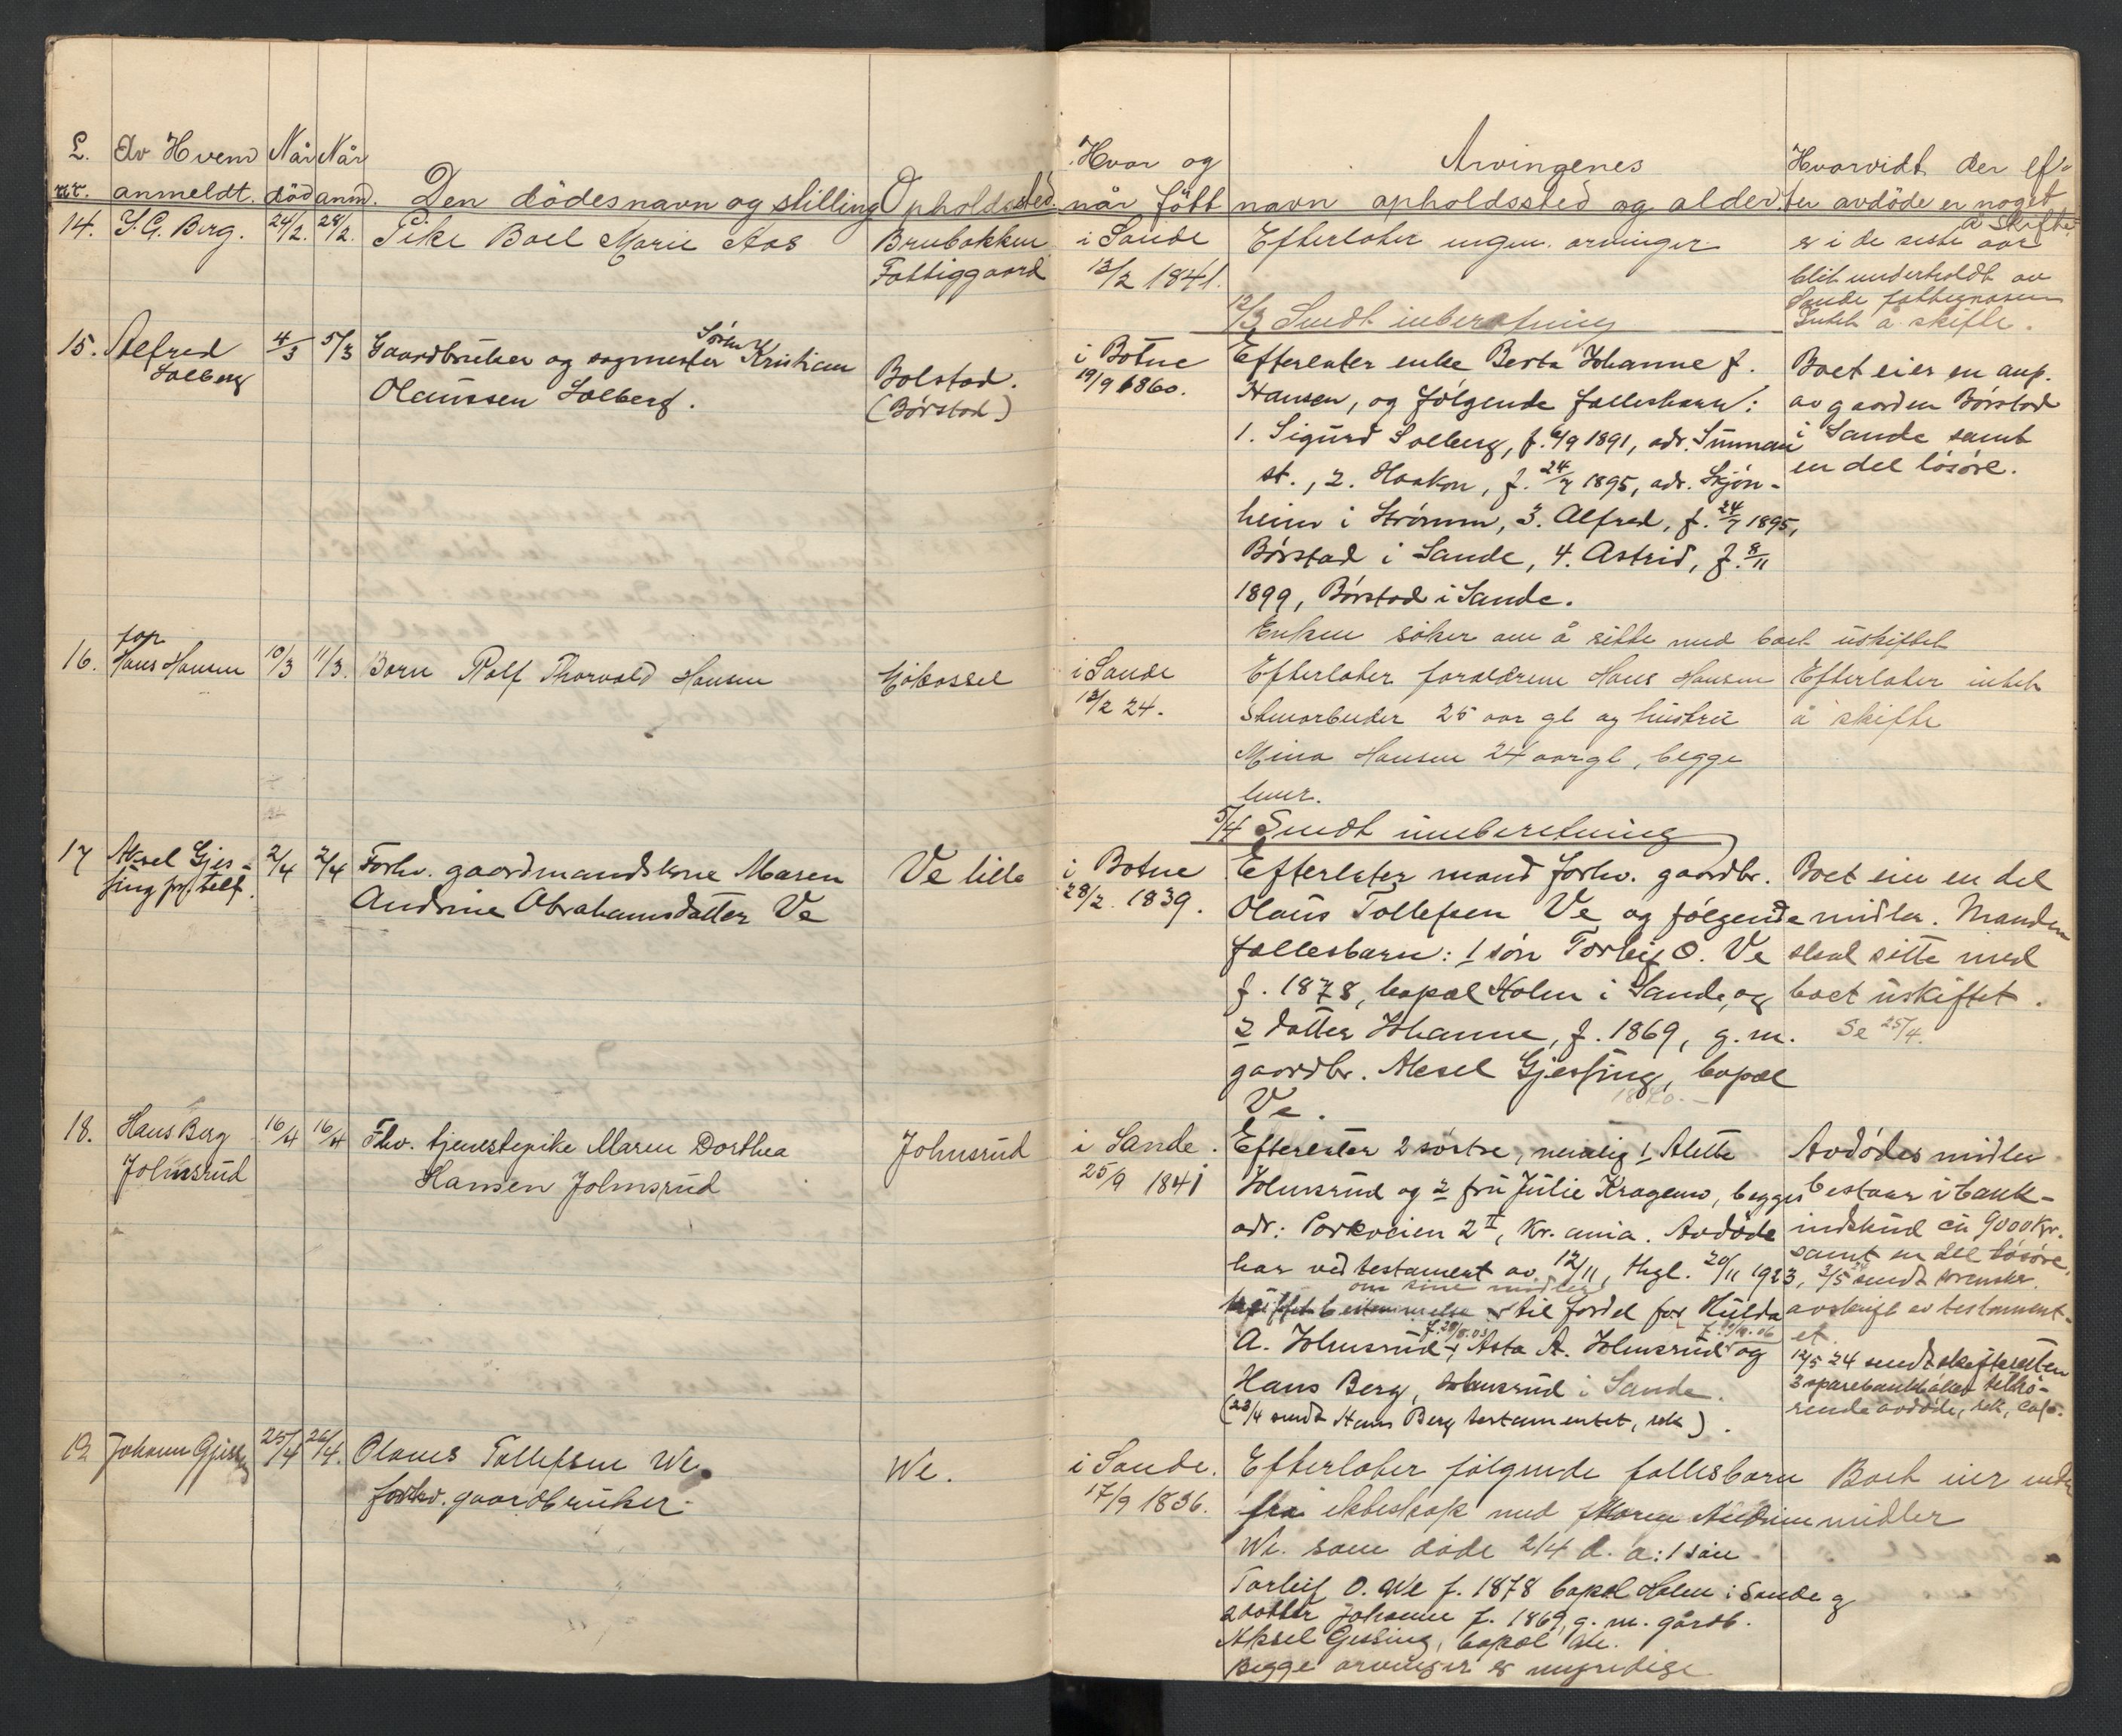 L. Av Hvem Når Når
nr. anmeldt. död anm. Den dödes navn og stilling Opholdssted.
Hvor og Arvingenes Hvorvidt der ef-
når født navn opholdssted og alder. ter avdöde er noget
å skifte.
14. J. G. Berg. 24/2. 28/2. Pike Boel Marie Aas Brubakken
Fattiggaard
i Sande
13/2 1841.
Efterlater ingen arvinger.
12/3 Sendt inberetning
er i de siste aar
blit underholdt av
Sande fattigvæsen
Intet å skifte.
15. Alfred
Solberg
4/3 5/3 Gaardbruker og sagmester Søren Kristian
Olaussen Solberg.
Bolstad.
(Børstad)
i Botne
19/9 1860.
Efterlater enke Berta Johanne f.
Hansen, og følgende fællesbarn:
1. Sigurd Solberg, f. 6/9 1891, adr.
st., 2. Haakon, f. 24/7 1895, adr. Skjøn-
heim i Strømm, 3. Alfred, f. 24/7 1895,
Børstad i Sande, 4. Astrid, f. 8/11
1899, Børstad i Sande.
Enken söker om å sitte med boet uskiftet
Boet eier en anp.
av gaarden Børstad
i Sande samt
en del lösöre.
16. far
Hans Hansen
10/3 11/3. Barn Rolf Thorvald Hansen
i Sande
13/2 24.
Efterlater forældrene Hans Hansen
stenarbeider 25 aar gl og hustru
Mina Hansen 24 aar gl, begge
her.
5/4 Sendt inberetning
Efterlater intet
å skifte
17 Aksel Gjes-
sing pr. telf.
2/4 2/4 Forhv. gaardmandskone Maren
Andrine Abrahamsdatter Ve
Ve lille
i Botne
28/2. 1839.
Efterlater mand forhv. gaardbr.
Olaus Tollefsen Ve og følgende
fællesbarn: 1 søn Torleif O. Ve
f. 1878, bopæl Holm i Sande, og
2 datter Johanne, f. 1869, g. m.
gaardbr. Aksel Gjessing, bopæl
Ve.
Boet eier en del
midler. Manden
skal sitte med
boet uskiftet.
Se 25/4.
18. Hans Berg
Johnsrud
16/4 16/4 Fhv. tjenestepike Maren Dorthea
Hansen Johnsrud
Johnsrud
i Sande.
25/9 1841
Efterlater 2 søstre, nemlig 1 Alette
Johnsrud og 2 fru Julie Kragemo, begges
adr: Parkveien 2 II, Kr.ania. Avdöde
har ved testament av 12/11, thgl. 20/11 1923,
om sine midler
truffet bestemmelse til fordel for Hulda
A. Johnsrud, Asta A. Johnsrud og
Hans Berg, Johnsrud i Sande.
(23/4 sendt Hans Berg testamentet, rek).
Avdødes midler
bestaar i bank-
indskud ca 9000 kr.
samt en del lösöre.
2/5 sendt sorenskr.
avskrift av testament-
et.
12/5 24 sendt skifteretten
3 sparebankbøker tilhö-
rende avdöde, rek,
19 Johann Gjessing 25/4 26/4. Olaus Tollefsen We
forhv. gaardbruker.
We.
i Sande.
17/9 1836.
Efterlater følgende fællesbarn
fra ekteskap med Maren Andrine
We. som døde 2/4 d. a: 1 søn
Torleif O. We f. 1878 bopæl Holm i Sande og
2 datter Johanne f. 1869, g. m. gårdb.
Aksel Gessing, bopæl We.
Begge arvinger er myndige
Boet eier endel
midler